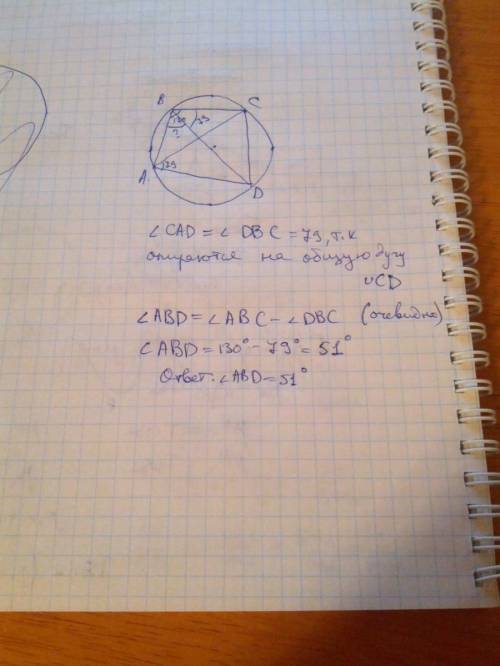 B
C
?
79
A
79
D
∠CAD = ∠DBC = 79, т.к
опираются на общую дугу
∪CD
∠ABD = ∠ABC - ∠DBC (очевидно)
∠ABD = 130° - 79° = 51°
Ответ: ∠ABD = 51°